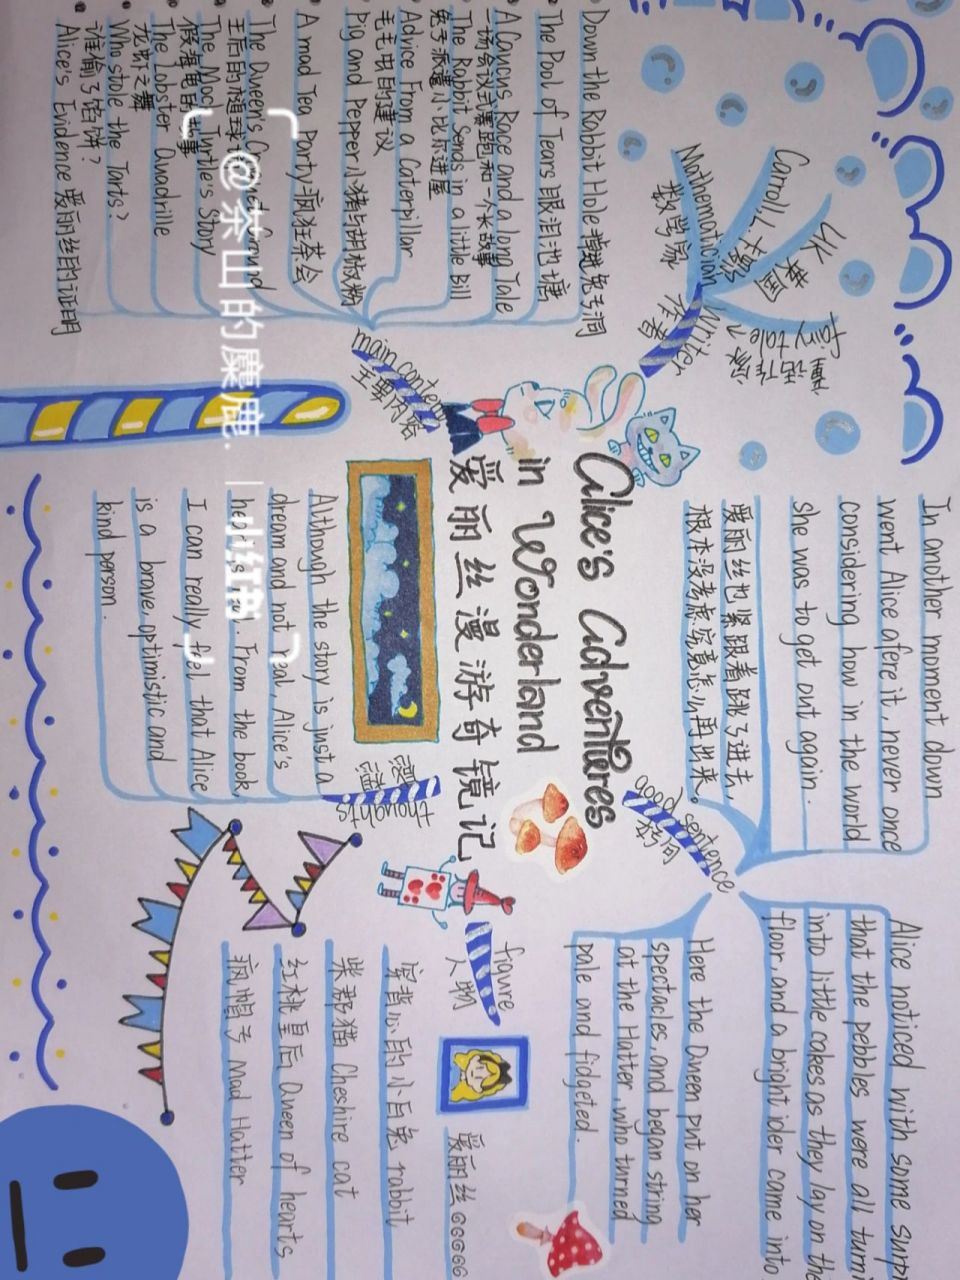 Alice's Adventures
in Wonderland
爱丽丝漫游奇镜记
Writer
作者
Carroll.L.
UK 英国
fairy tale
Mathematician
数学家
main content
主要内容
Down the Rabbit Hole 掉进兔子洞
The Pool of Tears 眼泪池塘
A Cancus Race and a long Tale
一场会议式赛跑和一个长故事
The Rabbit Sends in a little Bill
兔子派遣小比尔进屋
Advice From a Caterpillar
毛毛虫的建议
Pig and Pepper 小猪与胡椒粉
A mad Tea Party 疯狂茶会
The Queen's
王后的槌球
The Mock Turtle's Story
假海龟的故事
The Lobster Quadrille
龙虾之舞
Who stole the Tarts?
谁偷了馅饼?
Alice's Evidence 爱丽丝的证明
good sentence
In another moment down
went Alice afere it, never once
considering how in the world
she was to get out again.
爱丽丝也紧跟着跳了进去,
根本没考虑究竟怎么再出来。
Alice noticed with some
that the pebbles were all turn
into little cakes as they lay on th
floor, and a bright ider came into
Here the Queen put on her
spectacles and began string
at the Hatter, who turned
pale and fidgeted.
thoughts
Although the story is just a
dream and not real, Alice's
From the book,
I can really feel that Alice
is a brave, optimistic and
kind person.
figure
人物
爱丽丝
穿背心的小白兔 rabbit
柴郡猫 Cheshire cat
红桃皇后 Queen of hearts
疯帽子 Mad Hatter
@茶山的麋鹿.
小红书